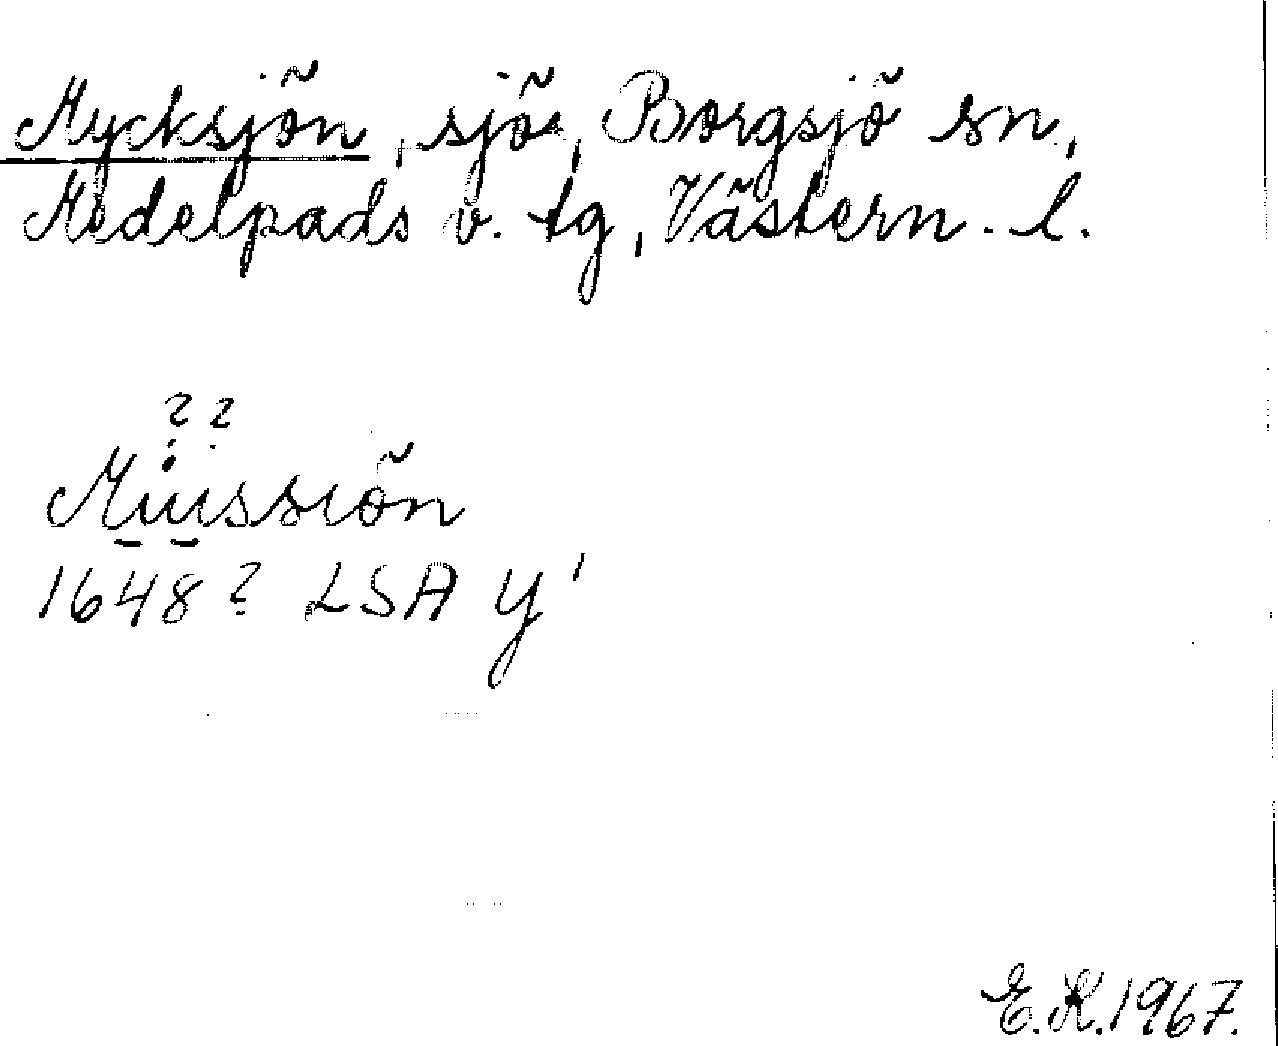 Mycksjön, sjö, Borgsjö sn,
Medelpads v. tg, Västern. l.
? ?
Müissiön
1648? LSA Y'
E.K. 1967.